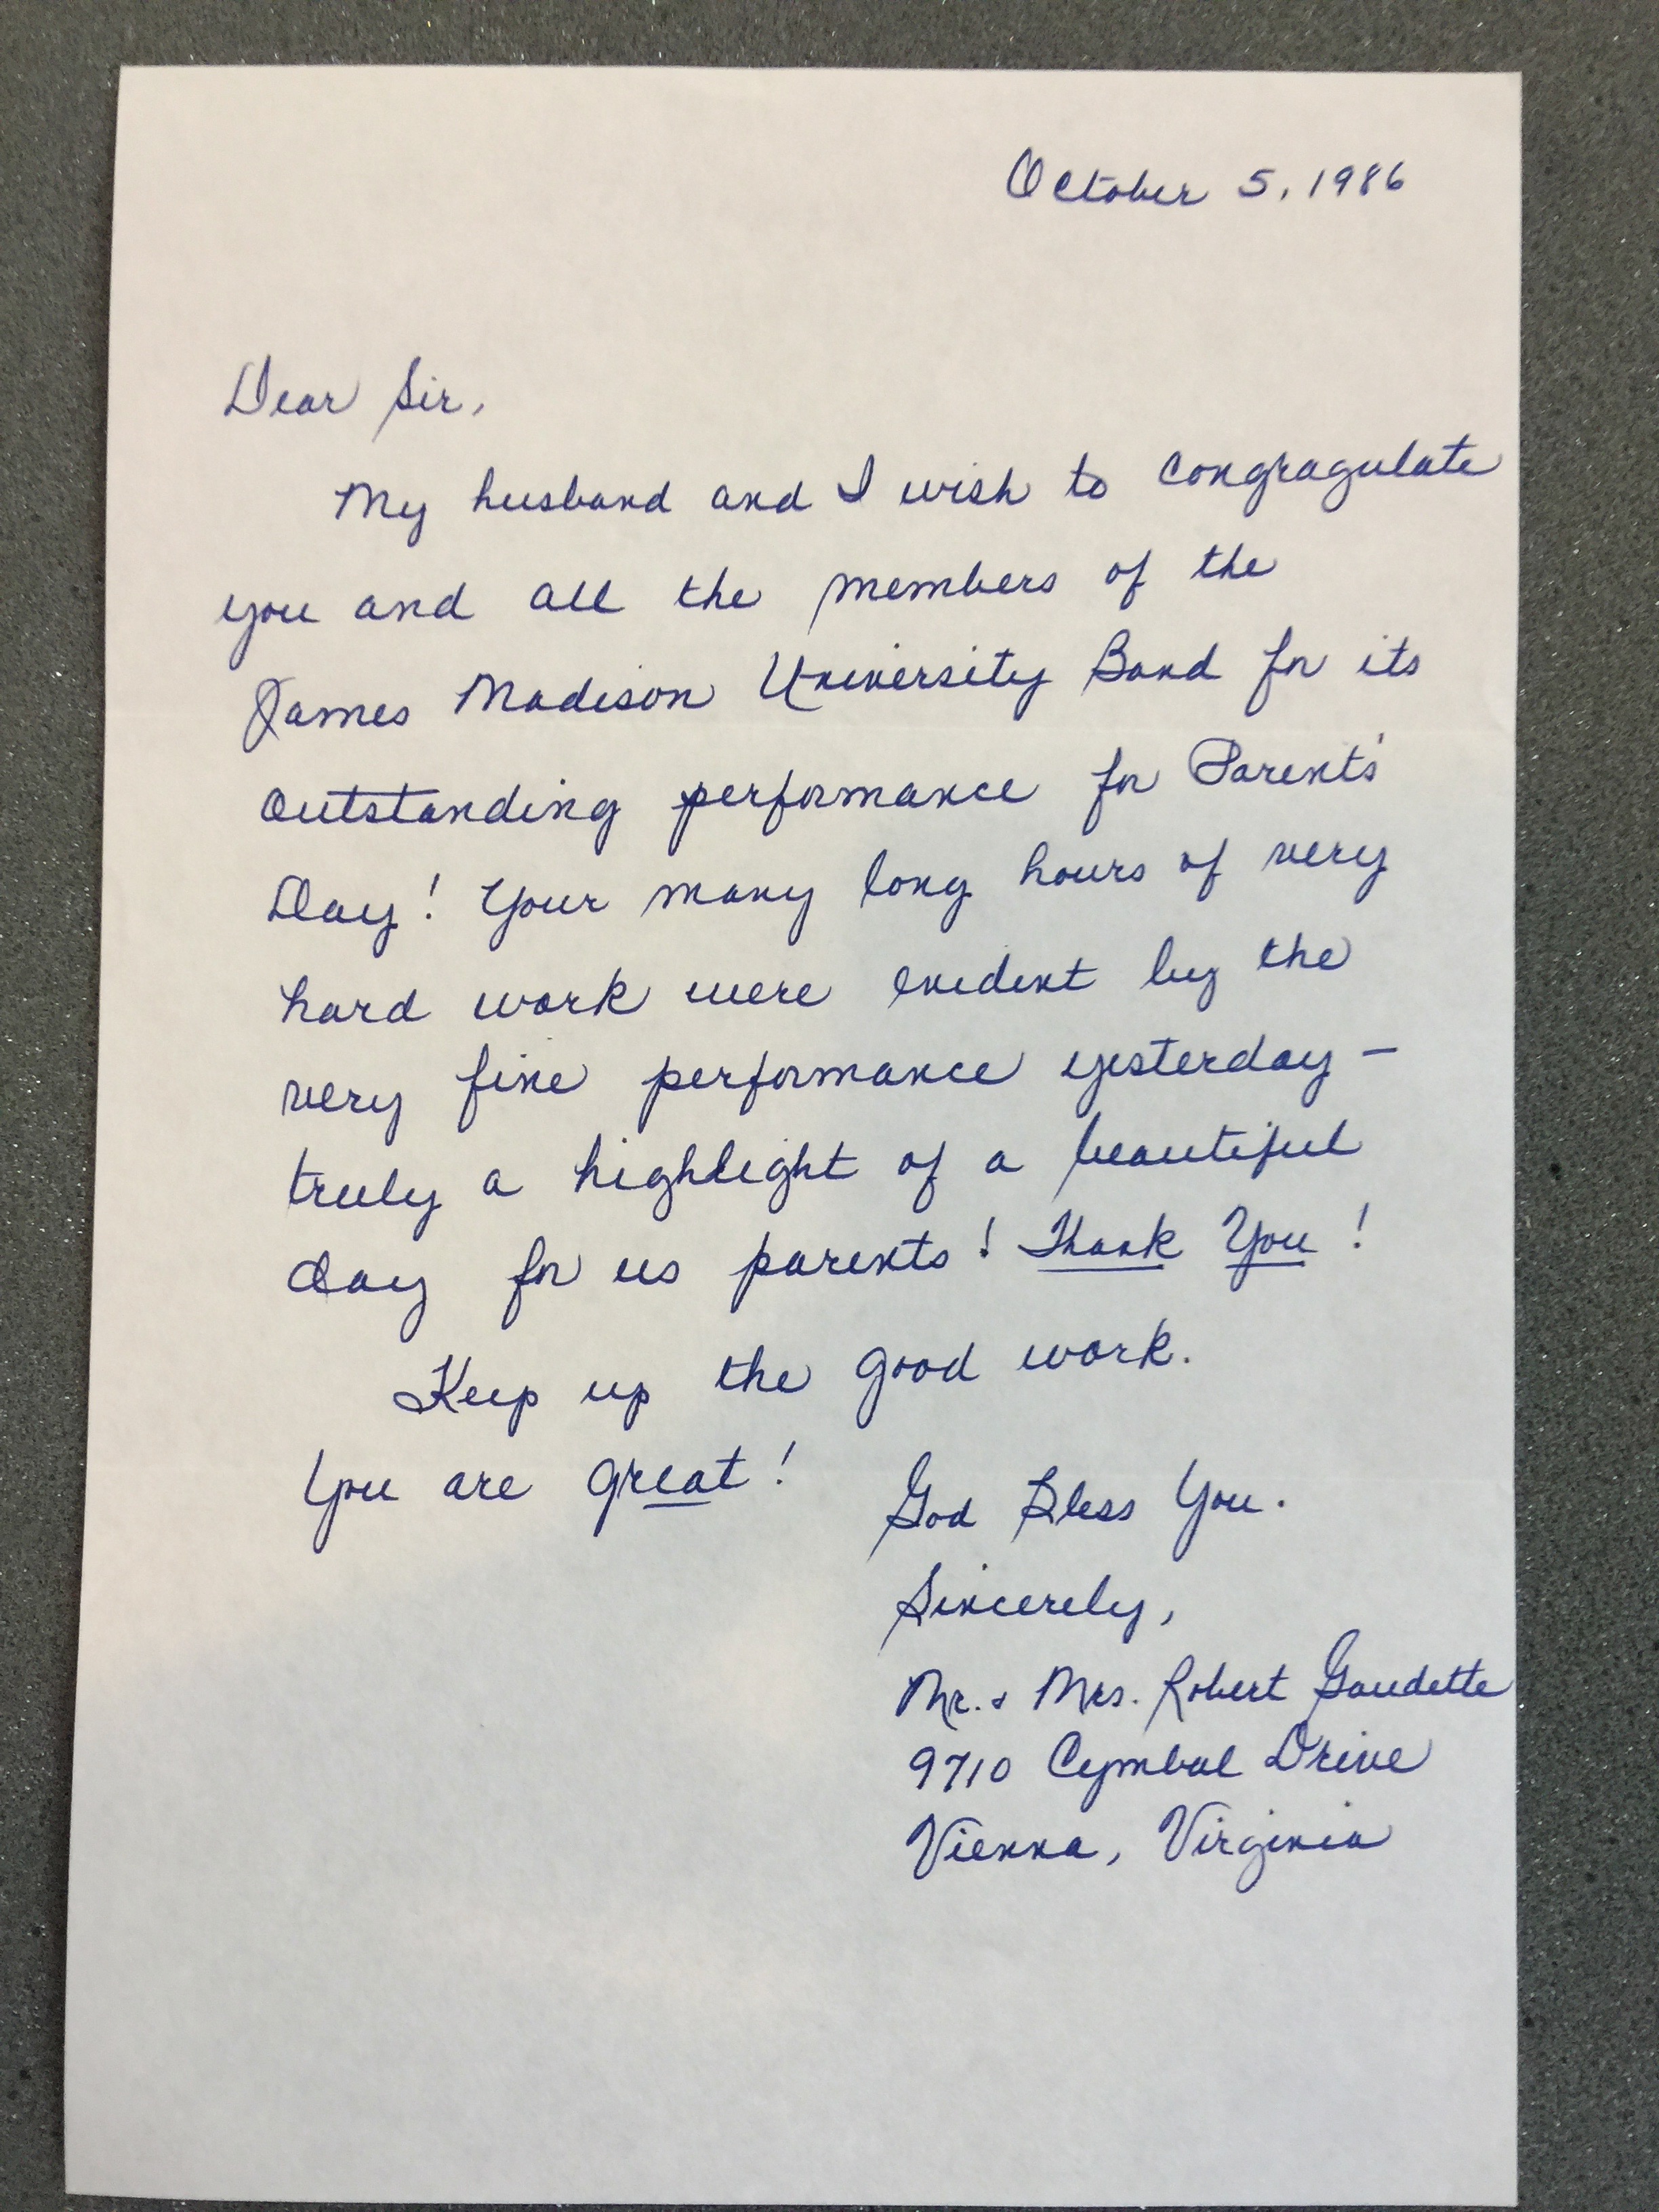 October 5, 1986
Dear Sir,
My husband and I wish to congragulate
you and all the members of the
James Madison University Band for its
outstanding performance for Parents'
Day! Your many long hours of very
hard work were evident by the
very fine performance yesterday –
truly a highlight of a beautiful
day for us parents! Thank You!
Keep up the good work.
You are great!
God Bless You.
Sincerely,
Mr. & Mrs. Robert Gaudette
9710 Cymbal Drive
Vienna, Virginia